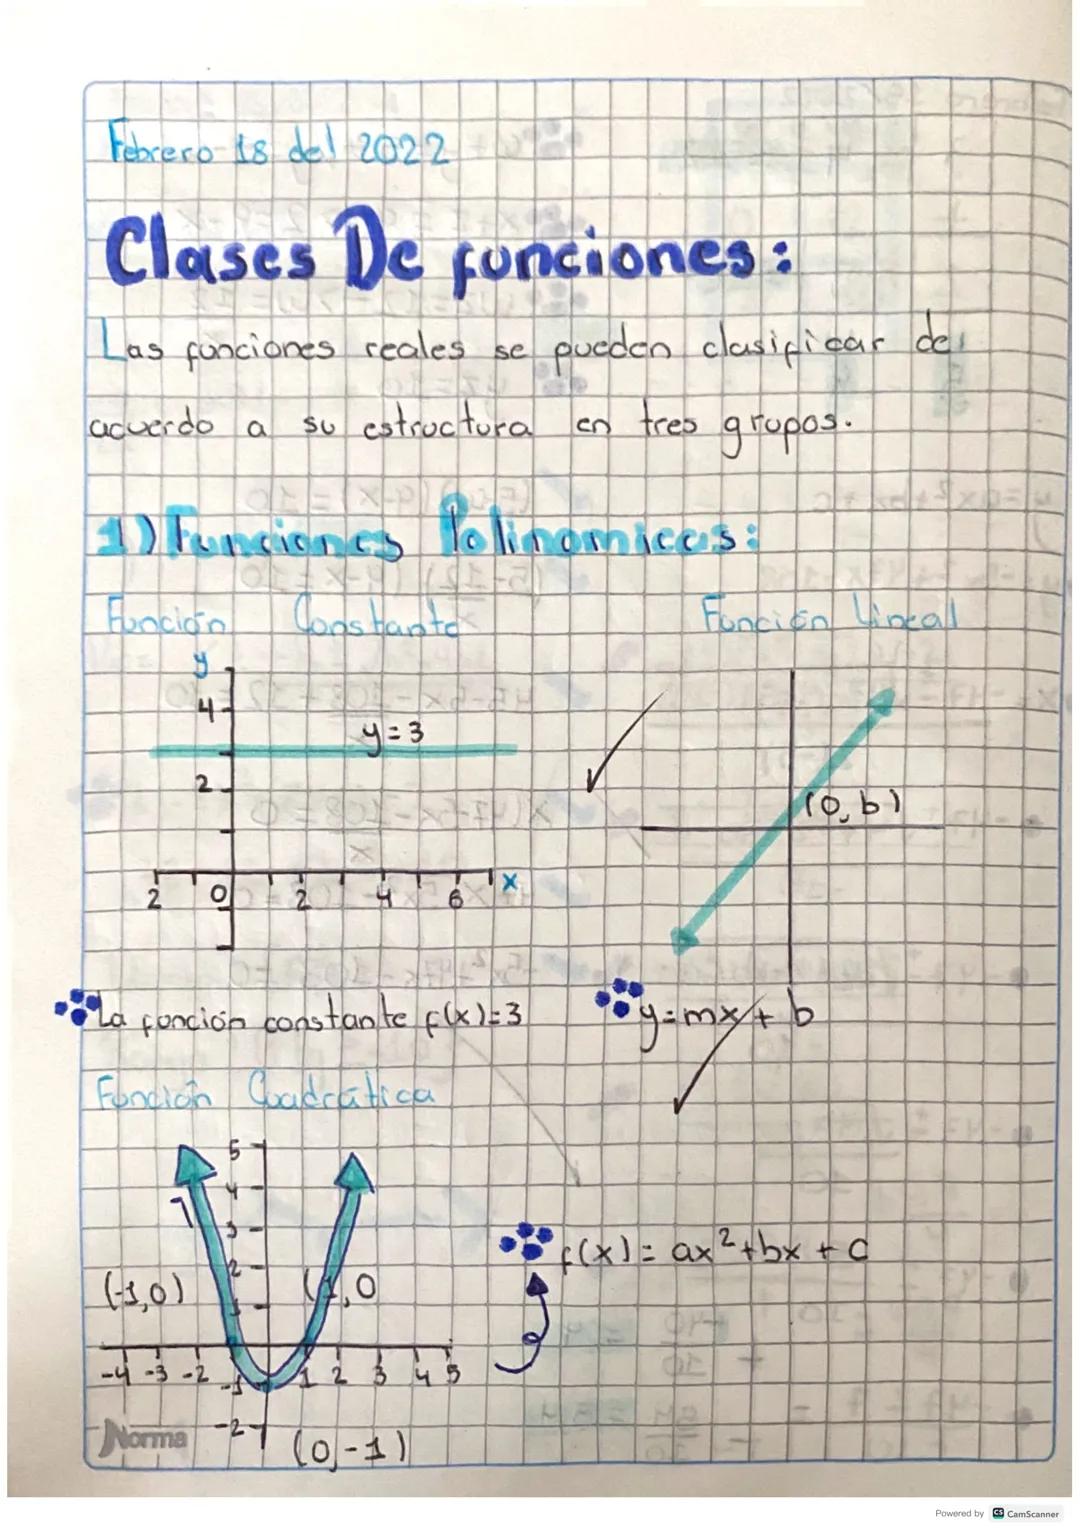 Febrero 18 del 2022
Clases De funciones:
Las funciones reales se pueden clasificar de
acuerdo a su estructura en tres grupos.
1) Funciones Polinomicas:
Función Constante
Función Lineal
y
4
y=3
2
(0, b)
2 0 2 4 6 x
La función constante f(x)=3
y=mx+b
Función Cuadrática
5
4
3
2
(-1,0)
(1,0
1
f(x)= ax²+bx+c
-4 -3 -2 1 2 3 4 5
-1
-2
(0,-1)
Norma
Powered by CS CamScanner